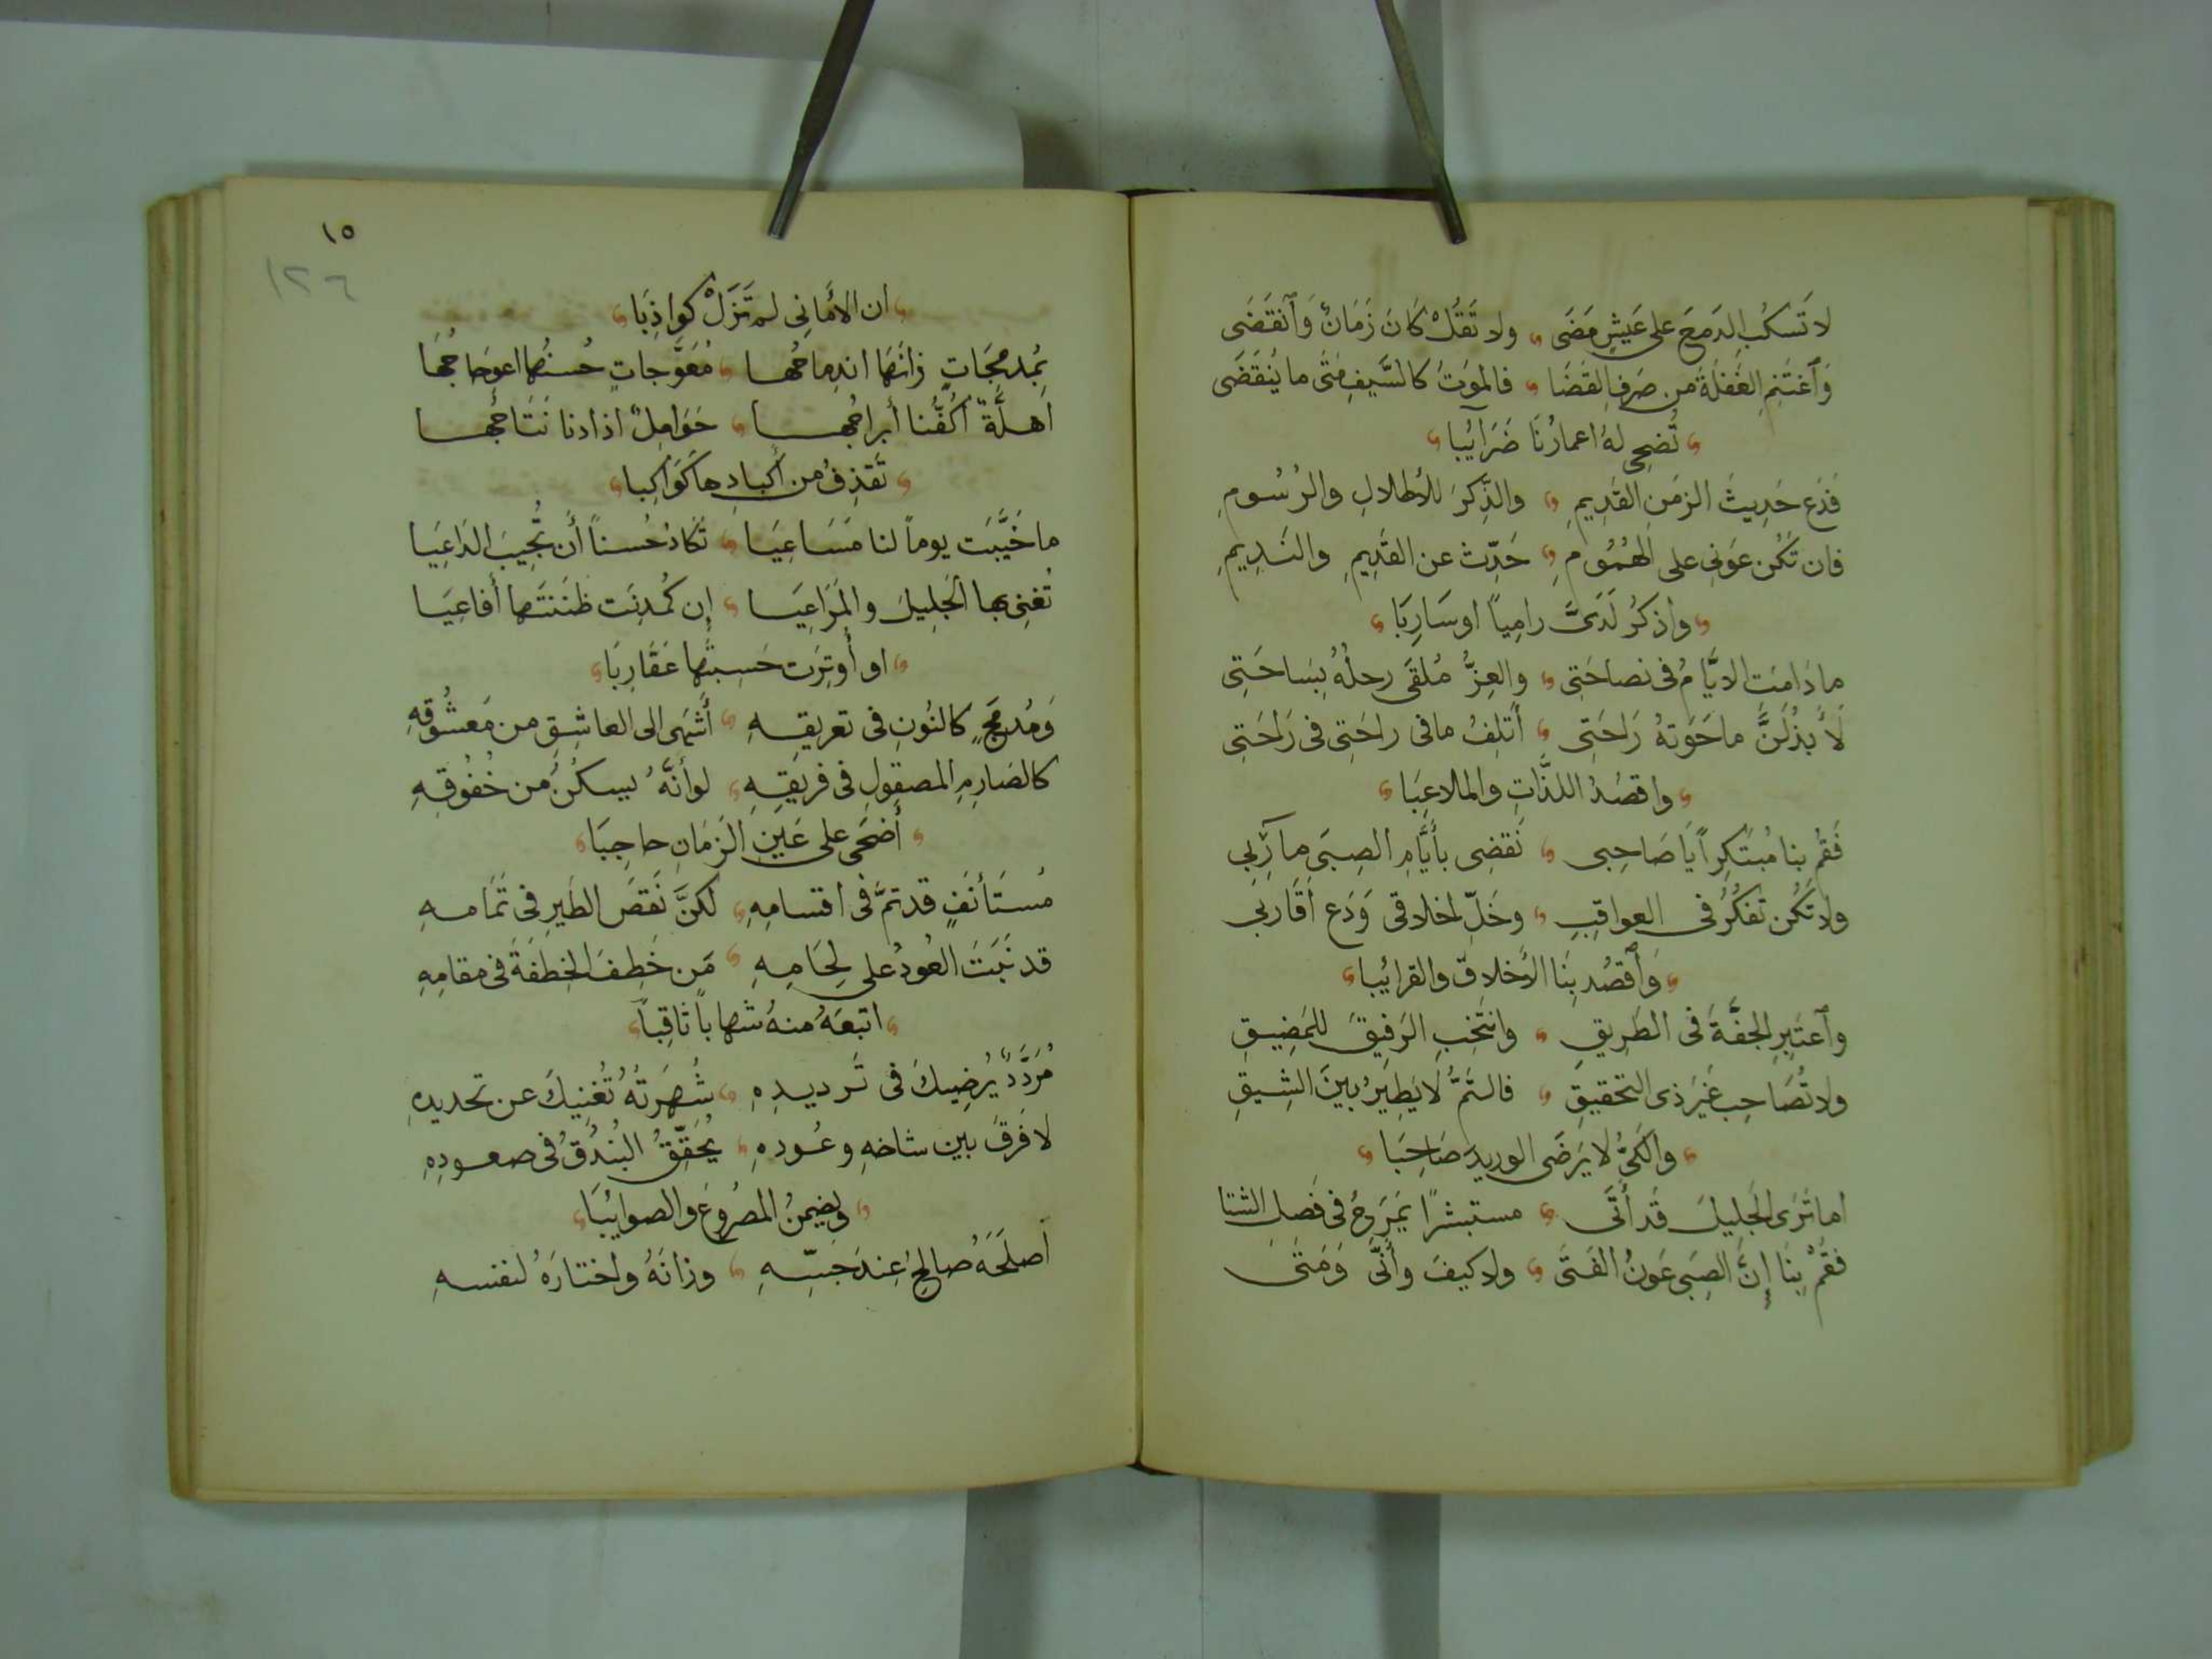 لا تَسكُبِ الدَمعَ على عَيشٍ مَضَى ولا تَقُلْ كَانَ زَمَانٌ وَٱنقَضَى
وَٱغتَنِمِ الغَفلَةَ من صَرفِ القَضَا فالموَتُ كالسَّيفِ مَتَى ما يُنتَقَضَى
تُضحِى لهُ اعمارُنَا ضَرَائِبا
فَدَع حَدِيثَ الزمَنِ القَدِيمِ والذِّكرَ للأطلالِ والرُسُومِ
فان تَكُن عَونى على الهُمُومِ حَدِّث عن القَدِيمِ والنَدِيمِ
واذكُر لَدَىَّ رامِياً او سَارِبَا
ما دَامَتِ الايَّامُ فى نصاحَتِى والعِزُّ مُلقَى رحلُهُ بِسَاحَتِى
لَأَبذُلَنَّ ما حَوَتهُ رَاحَتِى أتلِفُ ما فى راحَتِى فى رَاحَتِى
واقصُدُ اللذَّاتِ والملاعِبَا
فَقُم بنا مُبتَكِراً يَا صَاحِبى نَقضِى بأَيَّامِ الصِبَى مآرِبِى
ولا تَكُن تَفكُرُ فى العواقِبِ وخَلِّ اخلاقى وَدَع أقَاربى
وَٱقصُد بِنَا الأخلاقَ والقرائِبا
وٱعتَبِرِ الجفَّةَ فى الطَرِيقِ وانتَخِبِ الرَفِيقَ للمَضِيقِ
ولا تُصَاحِب غَيرَ ذى التحقيقِ فالتَمُّ لا يَطِيرُ بينَ الشِيقِ
والكَىُّ لا يَرضَى الوريدَ صَاحِبَا
اما تَرَى الجَلِيلَ قَد أَتَى مستبشرًا يَمرَحُ فى فَصلِ الشتا
فَقُمْ بِنَا إنَّ الصِبَى عَونُ الفَتَى ولا كيفَ وأنَّى وَمَتَى
١٥
١٢٦
ان الأمَانِى لم تَزَلْ كواذِبَا
بمُدمَجَاتٍ زانَهَا اندِماجُها مُعَوَّجاتٍ حُسنُها اعوِجَاجُهَا
اهلَّةٌ أكُفُّنا أبراجُها حَوَامِلٌ اذا دنا نَتَاجُها
تَقذِفُ من أكبادِها كَوَاكِبا
ما خَيَّبَت يوماً لنا مَسَاعِيَا تَكَادُ حُسناً أن تُجِيبَ الدَاعِيَا
تُغنِى بها الجَلِيلَ والمَرَاعِيَا إن كُمدِنَت ظَنَنتَها أفاعِيَا
او أُوتِرَت حَسِبتَها عَقَارِبَا
وَمُدمَجٍ كالنُونِ فى تعريقِهِ أَشهَى الى العاشِقِ من مَعشُوقِهِ
كالصَارِمِ المصقولِ فى فريقِهِ لو أنَّهُ يسكُنُ من خُفُوقِهِ
أضحَى على عَينِ الزمَانِ حاجِبَا
مُستَأنَفٍ قد تَمَّ فى اقسامِهِ لكنَّ نَقصَ الطَيرِ فى تَمَامهِ
قد نَبَتَ العُودُ على لِحَامِهِ مَن خَطِفَ الخطفَةَ فى مقامِهِ
اتبعَهُ منهُ شهاباً ثاقِباً
مُرَدَّدٌ يُرضِيكَ فى تَرديدِهِ شُهرَتُهُ تُغنِيكَ عن تحديدِهِ
لا فَرقَ بين شاخهِ وعُودهِ يُحَقِّقُ البُندُقُ فى صعودِهِ
ويضمنُ المصرُوعَ والصوائِبَا
أصلَحَهُ صالحُ عِندَ جَسِّهِ وزانَهُ واختارَهُ لنفسهِ